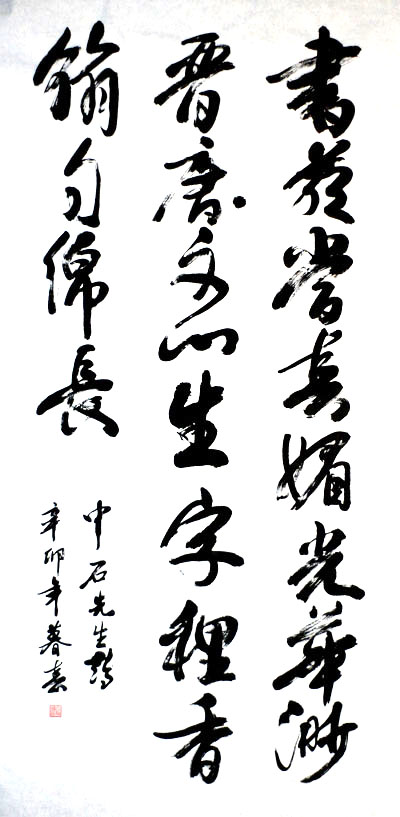 書春媚光華渺
晋唐文心生字裡香
翰自綿長
中石先生詩
辛卯年暮春